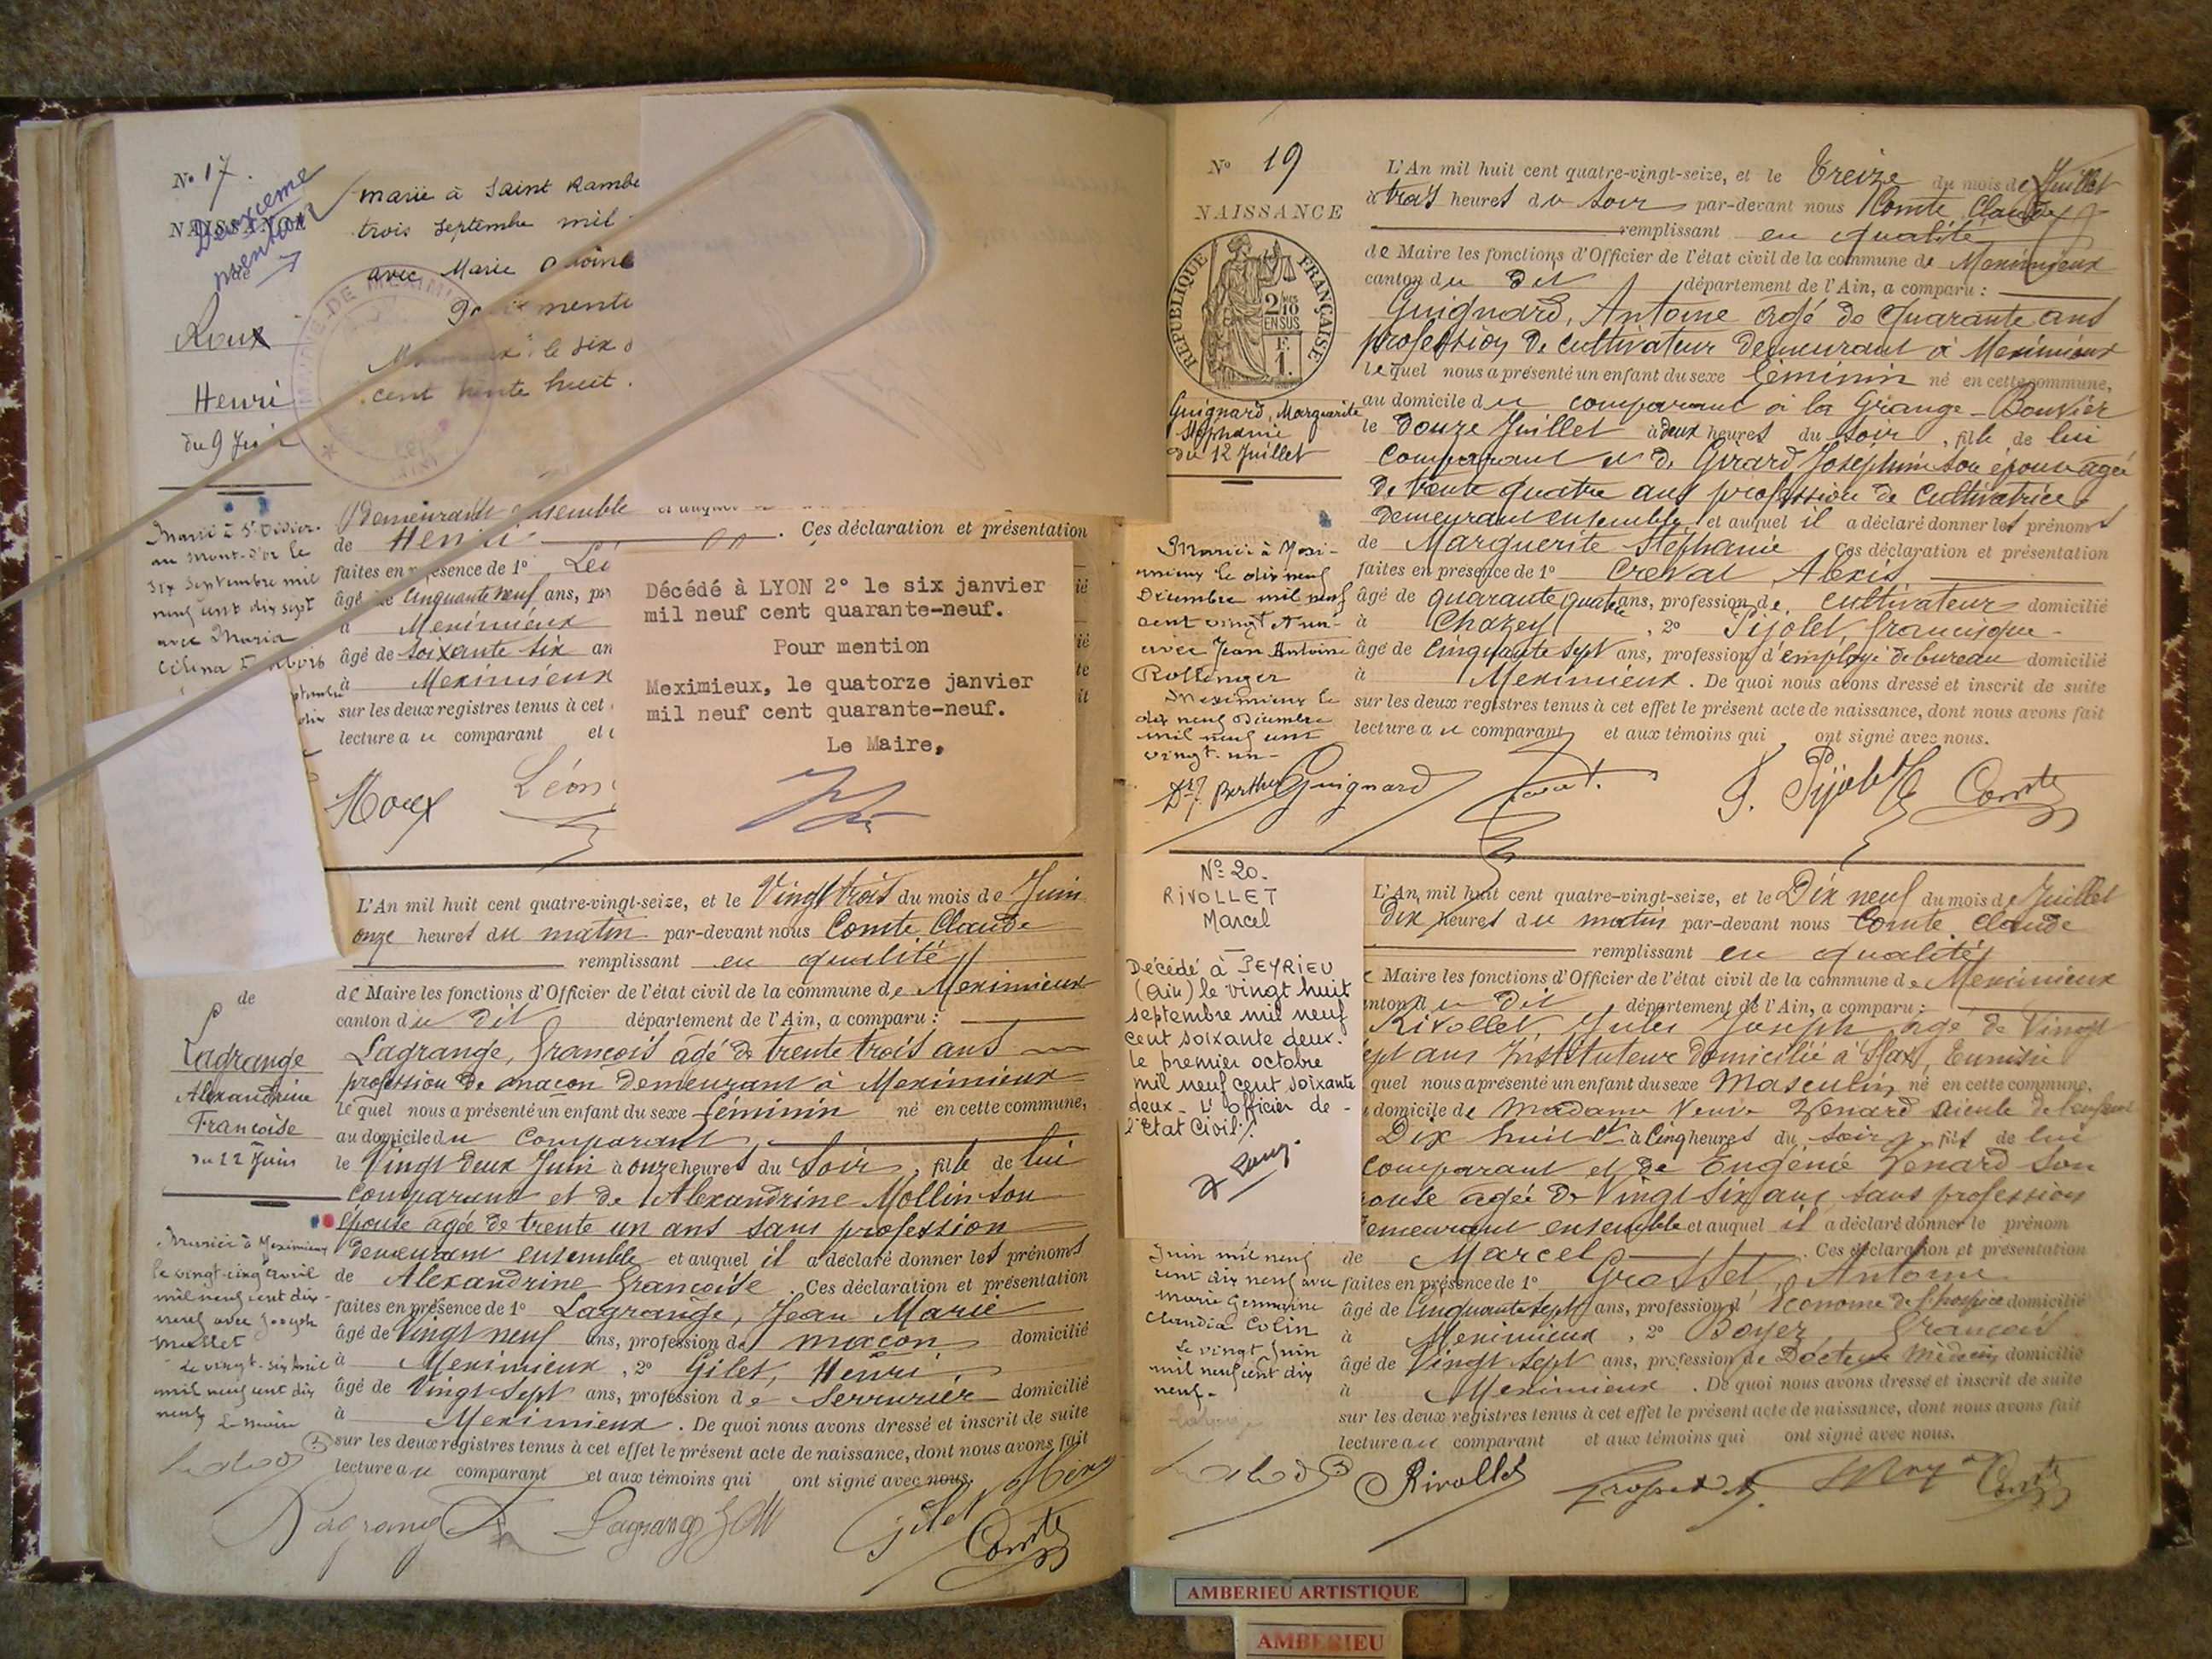 N° 17.
NAISSANCE
Deuxieme
mention
de
Roux
Henri
du 9 Juin
marié à Saint Rambe
trois septembre mil
avec Marie
le six
cent trente huit.
MAIRIE DE MEXIMI
demeurant ensemble et auquel
de Henri. Ces déclaration et présentation
faites en présence de 1° Léo
âgé de Cinquante neuf ans, pr
à Meximieux
âgé de soixante six an
à Meximieux
sur les deux registres tenus à cet
lecture au comparant et
Roux Léon
Marié à St Didier-
au Mont-d'or le
six Septembre mil
neuf cent dix sept
avec Maria
Célina
Décédé à LYON 2° le six janvier
mil neuf cent quarante-neuf.
Pour mention
Meximieux, le quatorze janvier
mil neuf cent quarante-neuf.
Le Maire,
de
Lagrange
Alexandrine
Françoise
du 22 Juin
Mariée à Meximieux
le vingt-cinq avril
mil neuf cent dix-
neuf avec Joseph
Mollet
Le vingt-six avril
mil neuf cent dix
neuf Le Maire
L'An mil huit cent quatre-vingt-seize, et le Vingt trois du mois de Juin
onze heures du matin par-devant nous Comte Claude
remplissant en qualité
de Maire les fonctions d'Officier de l'état civil de la commune de Meximieux
canton du dit département de l'Ain, a comparu :
Lagrange, François âgé de trente trois ans
profession de maçon demeurant à Meximieux
lequel nous a présenté un enfant du sexe féminin né en cette commune,
au domicile du comparant,
le Vingt deux Juin à onze heures du Soir, fille de lui
comparant et de Alexandrine Mollin son
épouse âgée de trente un ans sans profession
demeurant ensemble et auquel il a déclaré donner les prénoms
de Alexandrine Françoise. Ces déclaration et présentation
faites en présence de 1° Lagrange, Jean Marie
âgé de Vingt neuf ans, profession de maçon domicilié
à Meximieux, 2° Gilet, Henri
âgé de Vingt Sept ans, profession de Serrurier domicilié
à Meximieux. De quoi nous avons dressé et inscrit de suite
sur les deux registres tenus à cet effet le présent acte de naissance, dont nous avons fait
lecture au comparant et aux témoins qui ont signé avec nous.
Lagrange Lagrange Gilet Comte
N° 19
NAISSANCE
RÉPUBLIQUE FRANÇAISE
2/10
EN SUS
F.
1.
Guignard, Marguerite
Stéphanie
du 12 Juillet
Mariée à Mexi-
mieux le dix neuf
Décembre mil neuf
cent vingt et un-
avec Jean Antoine
Rollinger
Meximieux le
dix neuf Décembre
mil neuf cent
vingt-un-
L'An mil huit cent quatre-vingt-seize, et le Treize du mois de Juillet
à trois heures du Soir par-devant nous Comte Claude
remplissant en qualité
de Maire les fonctions d'Officier de l'état civil de la commune de Meximieux
canton du dit département de l'Ain, a comparu :
Guignard, Antoine âgé de Quarante ans
profession de cultivateur demeurant à Meximieux
lequel nous a présenté un enfant du sexe féminin né en cette commune,
au domicile du comparant à la Grange-Bouvier
le Douze Juillet à deux heures du soir, fille de lui
Comparant et de Girard Joséphine son épouse âgée
de trente quatre ans profession de Cultivatrice
demeurant ensemble, et auquel il a déclaré donner les prénoms
de Marguerite Stéphanie Ces déclaration et présentation
faites en présence de 1° Alexis
âgé de quarante quatre ans, profession de cultivateur domicilié
à Chazey, 2° Pijolet, Francisque-
âgé de Cinquante Sept ans, profession d'employé de bureau domicilié
à Meximieux. De quoi nous avons dressé et inscrit de suite
sur les deux registres tenus à cet effet le présent acte de naissance, dont nous avons fait
lecture au comparant et aux témoins qui ont signé avec nous.
Guignard F. Pijolet Comte
N° 20.
RIVOLLET
Marcel
Décédé à PEYRIEU
(Ain) le vingt huit
septembre mil neuf
cent soixante deux.
Le premier octobre
mil neuf cent soixante
deux - L'officier de -
l'Etat Civil /.
Juin mil neuf
cent dix neuf avec
Marie Germaine
Claudia Colin
Le vingt Juin
mil neuf cent dix
neuf-
L'An mil huit cent quatre-vingt-seize, et le Dix neuf du mois de Juillet
dix heures du matin par-devant nous Comte Claude
remplissant en qualité
Maire les fonctions d'Officier de l'état civil de la commune de Meximieux
anton du dit département de l'Ain, a comparu :
Rivollet, Jules Joseph âgé de Vingt
sept ans Instituteur domicilié à Sfax, Tunisie
quel nous a présenté un enfant du sexe Masculin né en cette commune,
domicile de Madame Veuve Venard aieule de l'enfant
Dix huit à Cinq heures du soir, fils de lui
comparant et de Eugénie Venard son
ouse âgée de Vingt six ans, sans profession
emeurant ensemble et auquel il a déclaré donner le prénom
de Marcel. Ces déclaration et présentation
faites en présence de 1° Grosset, Antoine
âgé de Cinquante sept ans, profession d'Econome de l'hospice domicilié
à Meximieux, 2° Boyer, François
âgé de Vingt sept ans, profession de Docteur Médecin domicilié
à Meximieux. De quoi nous avons dressé et inscrit de suite
sur les deux registres tenus à cet effet le présent acte de naissance, dont nous avons fait
lecture au comparant et aux témoins qui ont signé avec nous.
Rivollet Grosset Comte
AMBERIEU ARTISTIQUE
AMBERIEU